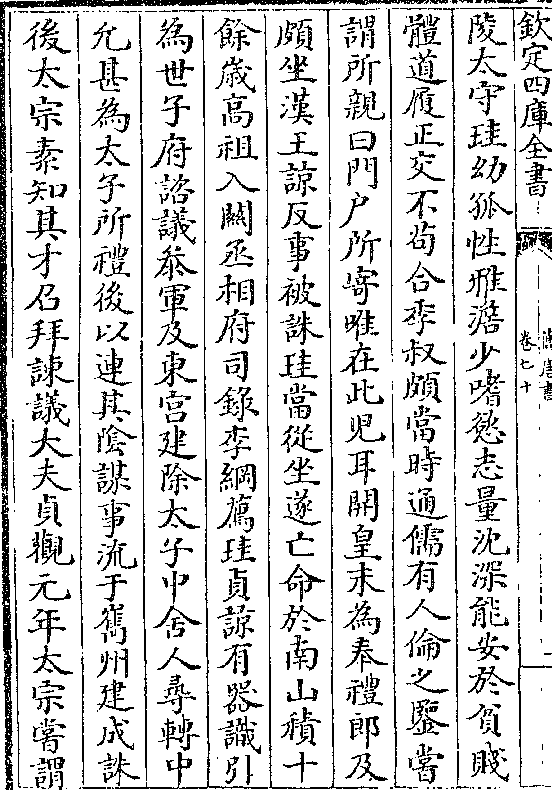 欽定四庫全書
舊唐書
卷七十
陵太守珪幼孤性雅澹少嗜慾志量沈深能安於貧賤
體道履正交不苟合季叔頗當時通儒有人倫之鑒嘗
謂所親曰門户所寄唯在此兒耳開皇末為奉禮郎及
頗坐漢王諒反事被誅珪當從坐遂亡命於南山積十
餘歲高祖入關丞相府司錄李綱薦珪貞諒有器識引
為世子府諮議叅軍及東宫建除太子中舍人尋轉中
允甚為太子所禮後以連其陰謀事流于嶲州建成誅
後太宗素知其才召拜諫議大夫貞觀元年太宗嘗謂